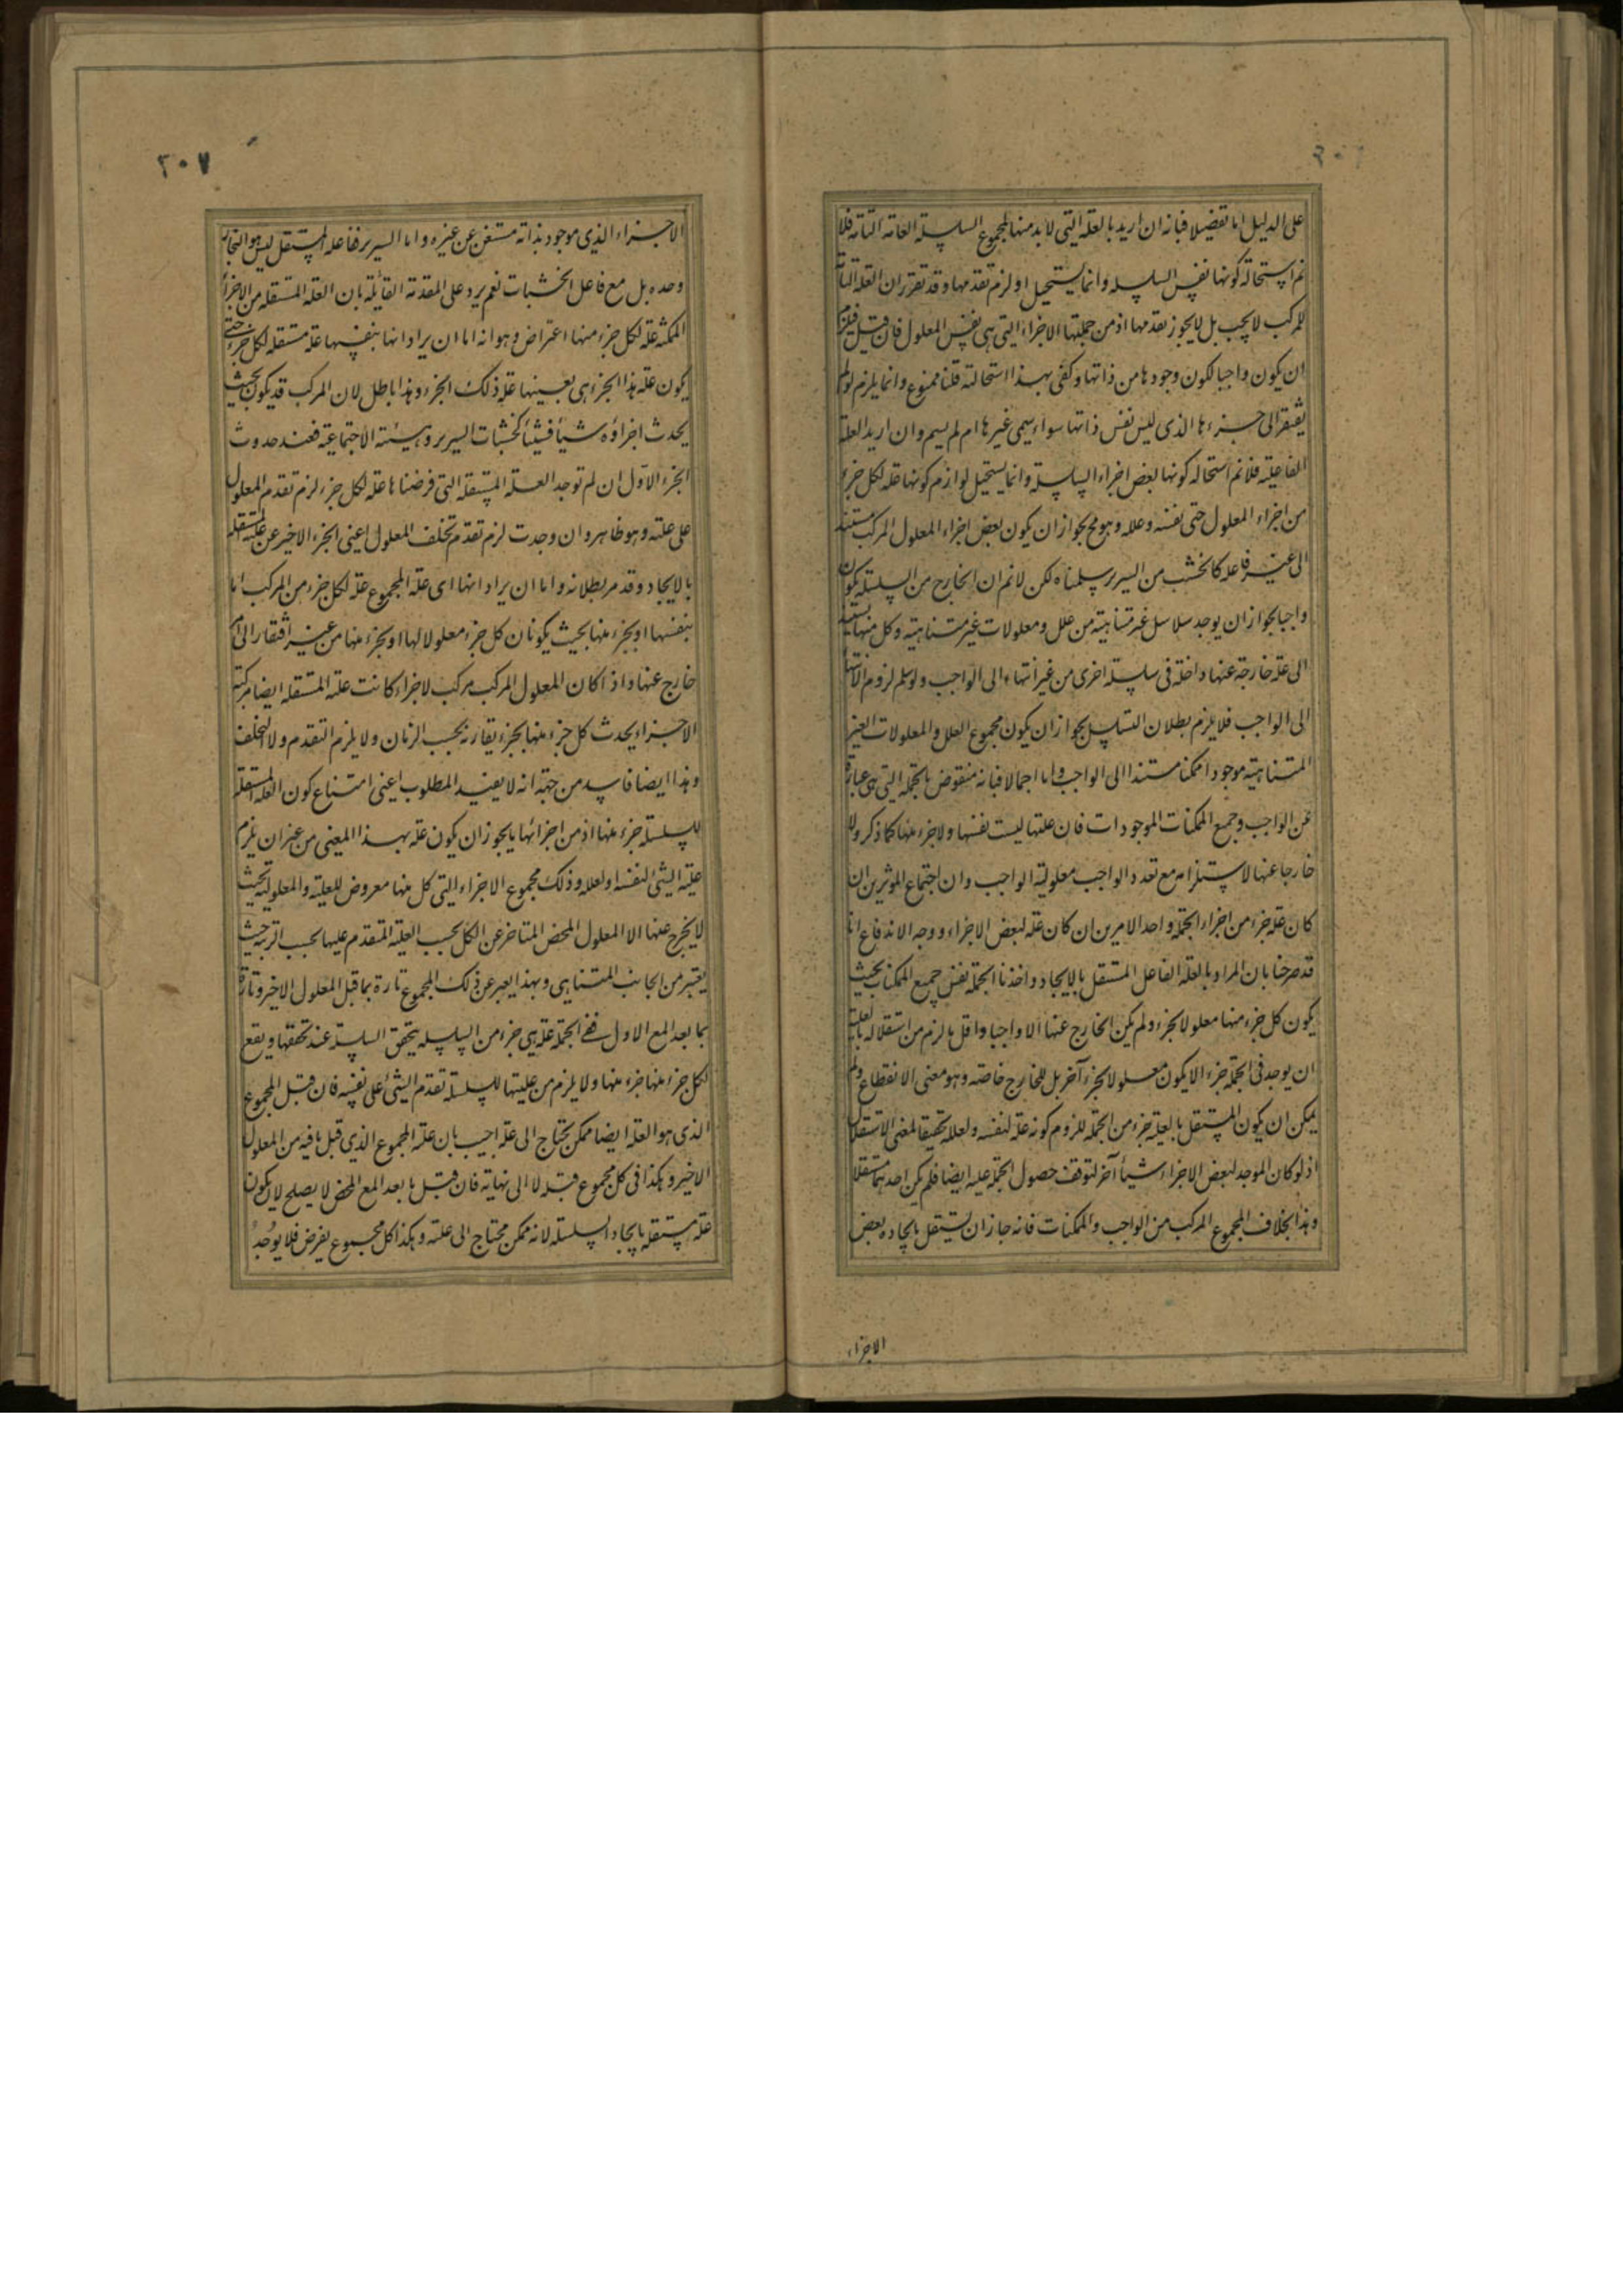 على الدليل اما تفضيلا فبانه ان اريد بالعلة التى لابد منها لمجموع السلسلة العامه التامه فلا
نم استحالة كونها نفس السلسله وانما يستحيل او لزم تقدمها وقد تقرر ان العلة التامة
للمركب لا يجب بل لا يجوز تقدمها اذ من جملتها الاجزاء التى هى نفس المعلول فان قيل فيلزم
ان يكون واجبا لكون وجودها من ذاتها وكفى بهذا استحالته قلنا ممنوع وانما يلزم لو لم
يفتقر الى جزءها الذى ليس نفس ذاتها سواء سمى غيرها ام لم يسم وان اريد العلة
الفاعلية فلا نم استحاله كونها بعض اجزاء السلسلة وانما يستحيل لو لزم كونها علة لكل جزء
من اجزاء المعلول حتى نفسه وعلله وهو مم لجواز ان يكون بعض اجزاء المعلول المركب مستند
الى غير فاعله كالخشب من السرير سلمناه لكن لا نم ان الخارج من السلسلة يكون
واجبا لجواز ان يوجد سلاسل غير متناهية من علل ومعلولات غير متناهية وكل منها يستند
الى علة خارجة عنها داخلة فى سلسلة اخرى من غير انتهاء الى الواجب ولو سلم لزوم الانتهاء
الى الواجب فلا يلزم بطلان التسلسل لجواز ان يكون مجموع العلل والمعلولات الغير
المتناهية موجودا ممكنا مستندا الى الواجب واما اجمالا فبانه منقوض بالجملة التى هى عبارة
عن الواجب وجميع الممكنات الموجودات فان علتها ليست نفسها ولا جزء منها كما ذكر ولا
خارجا عنها لاستلزامه مع تعدد الواجب معلولية الواجب وان اجتماع الموثرين ان
كان علة جزء من اجزاء الجملة واحد الامرين ان كان علة لبعض الاجزاء ووجه الاندفاع انا
قد صرحنا بان المراد بالعلة الفاعل المستقل بالايجاد واخذنا الجملة نفس جميع الممكنات بحيث
يكون كل جزء منها معلولا لجزء ولم يكن الخارج عنها الا واجبا واقل ما لزم من استقلاله بالعلية
ان يوجد فى الجملة جزء الا يكون معلولا لجزء آخر بل للخارج خاصة وهو معنى الانقطاع ولم
يمكن ان يكون المستقل بالعلية جزء من الجملة للزوم كونه علة لنفسه ولعلله تحقيقا لمعنى الاستقلال
اذ لو كان الموجد لبعض الاجزاء شيأ آخر لتوقف حصول الجملة عليه ايضا فلم يكن احدهما مستقلا
وهذا بخلاف المجموع المركب من الواجب والممكنات فانه جاز ان يستقل بايجاده بعض
الاجزاء
٢٠٧
الاجزاء الذى موجود بذاته مستغن عن غيره واما السرير ففاعله المستقل ليس هو النجار
وحده بل مع فاعل الخشبات نعم يرد على المقدمة القائلة بان العلة المستقله من الاجزاء
الممكنة علة لكل جزء منها اعتراض وهو انه اما ان يراد انها بنفسها علة مستقله لكل جزء حتى
يكون علة هذا الجزء هى بعينها علة ذلك الجزء وهذا باطل لان المركب قد يكون بحيث
يحدث اجزاؤه شيأ فشيأ كخشبات السرير وهيئته الاجتماعية فعند حدوث
الجزء الاول ان لم توجد العلة المستقلة التى فرضناها علة لكل جزء لزم تقدم المعلول
على علته وهو ظاهر وان وجدت لزم تقدم تخلف المعلول اعنى الجزء الاخير عن علته المستقلة
بالايجاد وقد مر بطلانه واما ان يراد انها اى علة المجموع علة لكل جزء من المركب اما
بنفسها او بجزء منها بحيث يكونان كل جزء معلولا لها او لجزء منها من غير افتقار الى امر
خارج عنها واذا كان المعلول المركب مركب لاجزاء كانت علته المستقلة ايضا مركبة
الاجزاء يحدث كل جزء منها بجزء يقارنه بحسب الزمان ولا يلزم التقدم ولا التخلف
وهذا ايضا فاسد من جهة انه لا يفيد المطلوب اعنى امتناع كون العلة المستقلة
للسلسلة جزء منها اذ من اجزائها ما يجوز ان يكون علة بهذا المعنى من غير ان يلزم
علية الشئ لنفسه او لعلله وذلك مجموع الاجزاء التى كل منها معروض للعلية والمعلولية بحيث
لا يخرج عنها الا المعلول المحض المتاخر عن الكل بحسب العلية المتقدم عليها بحسب الرتبة حيث
يعتبر من الجانب المتناهى وبهذا يعبر عن ذلك المجموع تارة بما قبل المعلول الاخير وتارة
بما بعد المع الاول ففى الجملة علة هى جزء من السلسلة يتحقق السلسلة عند تحققها ويقع
لكل جزء منها جزء منها ولا يلزم من عليتها للسلسلة تقدم الشئ على نفسه فان قيل المجموع
الذى هو العلة ايضا ممكن يحتاج الى علة اجيب بان علة المجموع الذى قبل ما فيه من المعلول
الاخير وهكذا فى كل مجموع قبله لا الى نهاية فان قيل ما بعد المع المحض لا يصلح لان يكون
علة مستقلة بايجاد السلسلة لانه ممكن محتاج الى علته وهكذا كل مجموع يفرض فلا يوجد